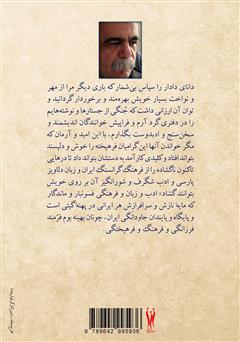 دانای دادار را سپاس بی‌شمار که باری دیگر مرا از مهر
و نواخت بسیار خویش بهره‌مند و برخوردار گردانید و
توان آن ارزانی داشت که جُنگی از جستارها و نوشته‌هایم
را در دفتری گرد آرم و فراپیش خوانندگان اندیشمند و
سخن‌سنج و ادبدوست بگذارم. با این امید و آرمان که
مگر خواندن آنها این گرامیان فرهیخته را خوش و دلپسند
بتواند افتاد و کلیدی کارآمد به دستشان بتواند داد تا درهایی
تاکنون ناگشاده را از فرهنگ گرانسنگ ایران و زبان دلاویز
پارسی و ادب شگرف و شورانگیز آن بر روی خویش
بتوانند گشاد؛ ادب و زبان و فرهنگی فسونبار و ماندگار
که مایهٔ نازش و سرافرازش هر ایرانی در پهنهٔ گیتی است
و پایگاه و پایندان جاودانگی ایران، چونان بهینه بوم فرّمند
فرزانگی و فرهنگ و فرهیختگی.
9 789642 995936